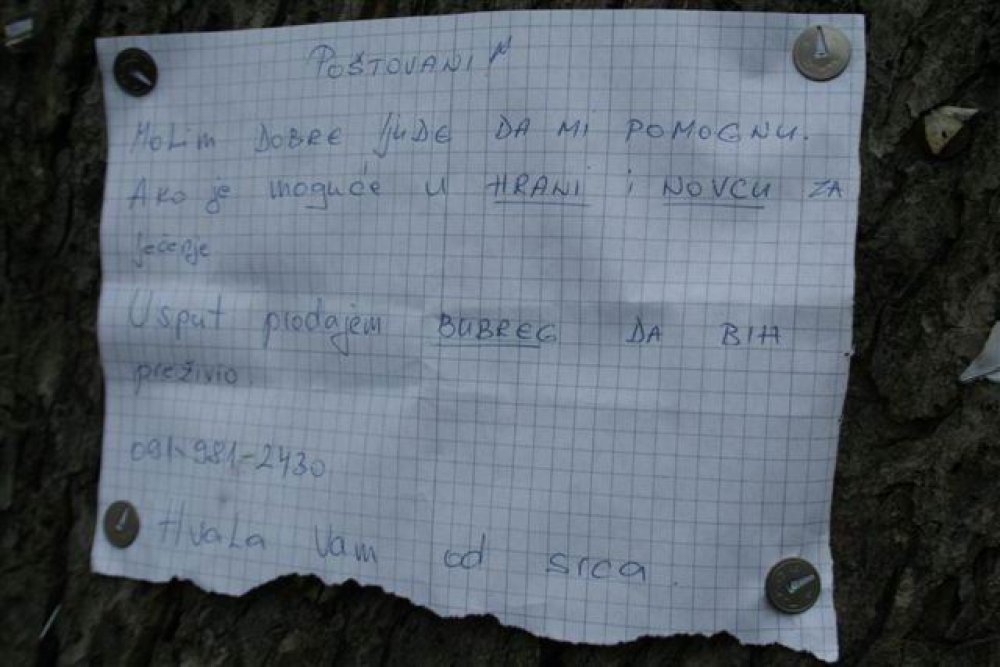 POŠTOVANI
MOLIM DOBRE ljuDE DA MI POMOGNU.
AKO je moguće u HRANI i NOVCU ZA
ječenje
Usput prodajem BUBREG DA BIH
preživio.
091-981-2430
HvaLa Vam od srca.